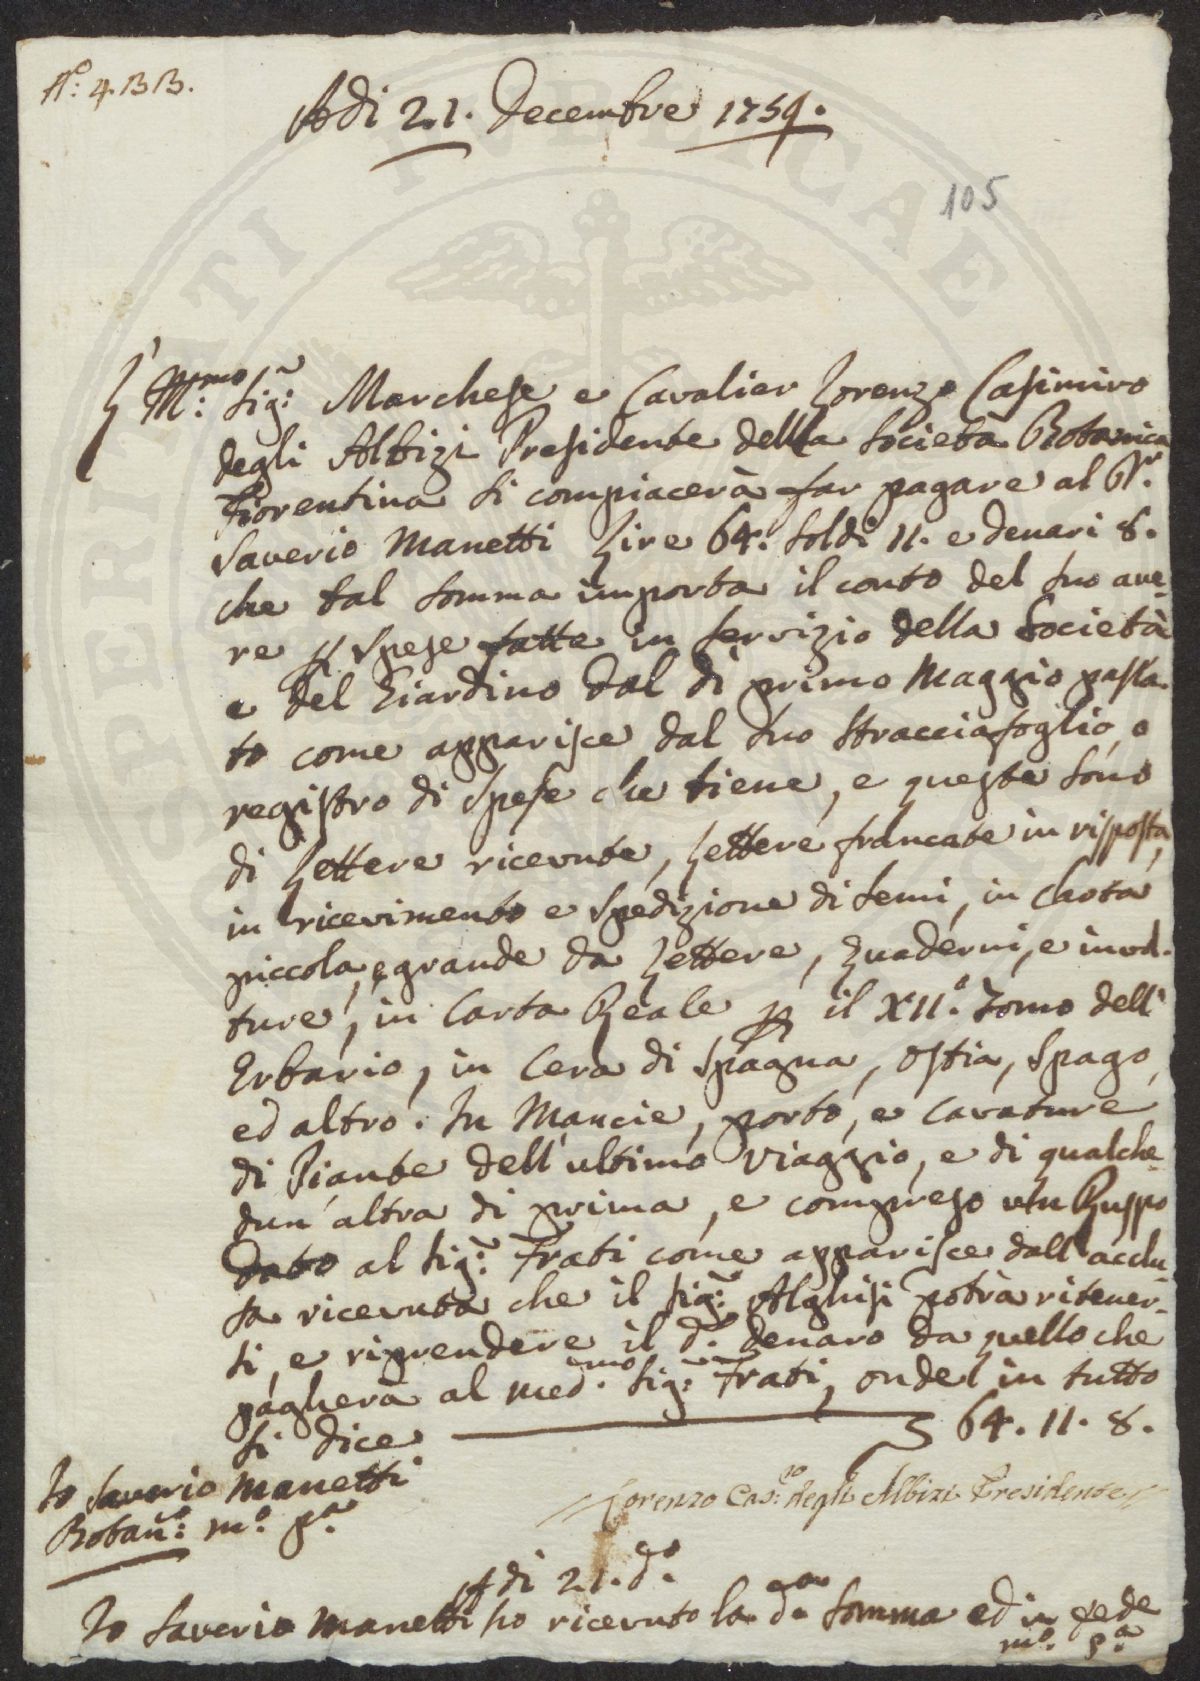 N.o 4. B B.
Adi 21. Decembre 1759.
105
L' Ill.mo Sig.r Marchese e Cavalier Lorenzo Casimiro
degli Albizi Presidente della Società Botanica
Fiorentina si compiacerà far pagare al D.r
Saverio Manetti Lire 64. soldi 11. e denari 8.
che tal somma importa il conto del suo ave-
re p spese fatte in servizio della Società
e del Giardino dal dì primo Maggio passa-
to come apparisce dal suo stracciafoglio, o
registro di spese che tiene, e queste sono
di Lettere ricevute, Lettere francate in risposta,
in ricevimento e spedizione di semi, in Carta
piccola, e grande da Lettere, Quaderni, e invol-
ture, in Carta Reale p il XII.o Tomo dell'
Erbario, in Cera di Spagna, Ostia, Spago,
ed altro. In Mancie, porto, e Cavature
di Piante dell'ultimo viaggio, e di qualche-
dun' altra di prima, e compreso un Ruspo
dato al Sig.r Frati come apparisce dall'acclu-
sa ricevuta che il Sig.r Alghisi potrà ritener-
si, e riprendere il d.o denaro da quello che
pagherà al med.mo Sig.r Frati, onde in tutto
si dice 64. 11. 8.
Io Saverio Manetti
Botan.o m.o p.a
Lorenzo Cas.ro degli Albizi Presidente
Adi 21. d.o
Io Saverio Manetti ho ricevuto la d.a somma ed in fede
m.o p.a
SPERITATI PVBLICAE